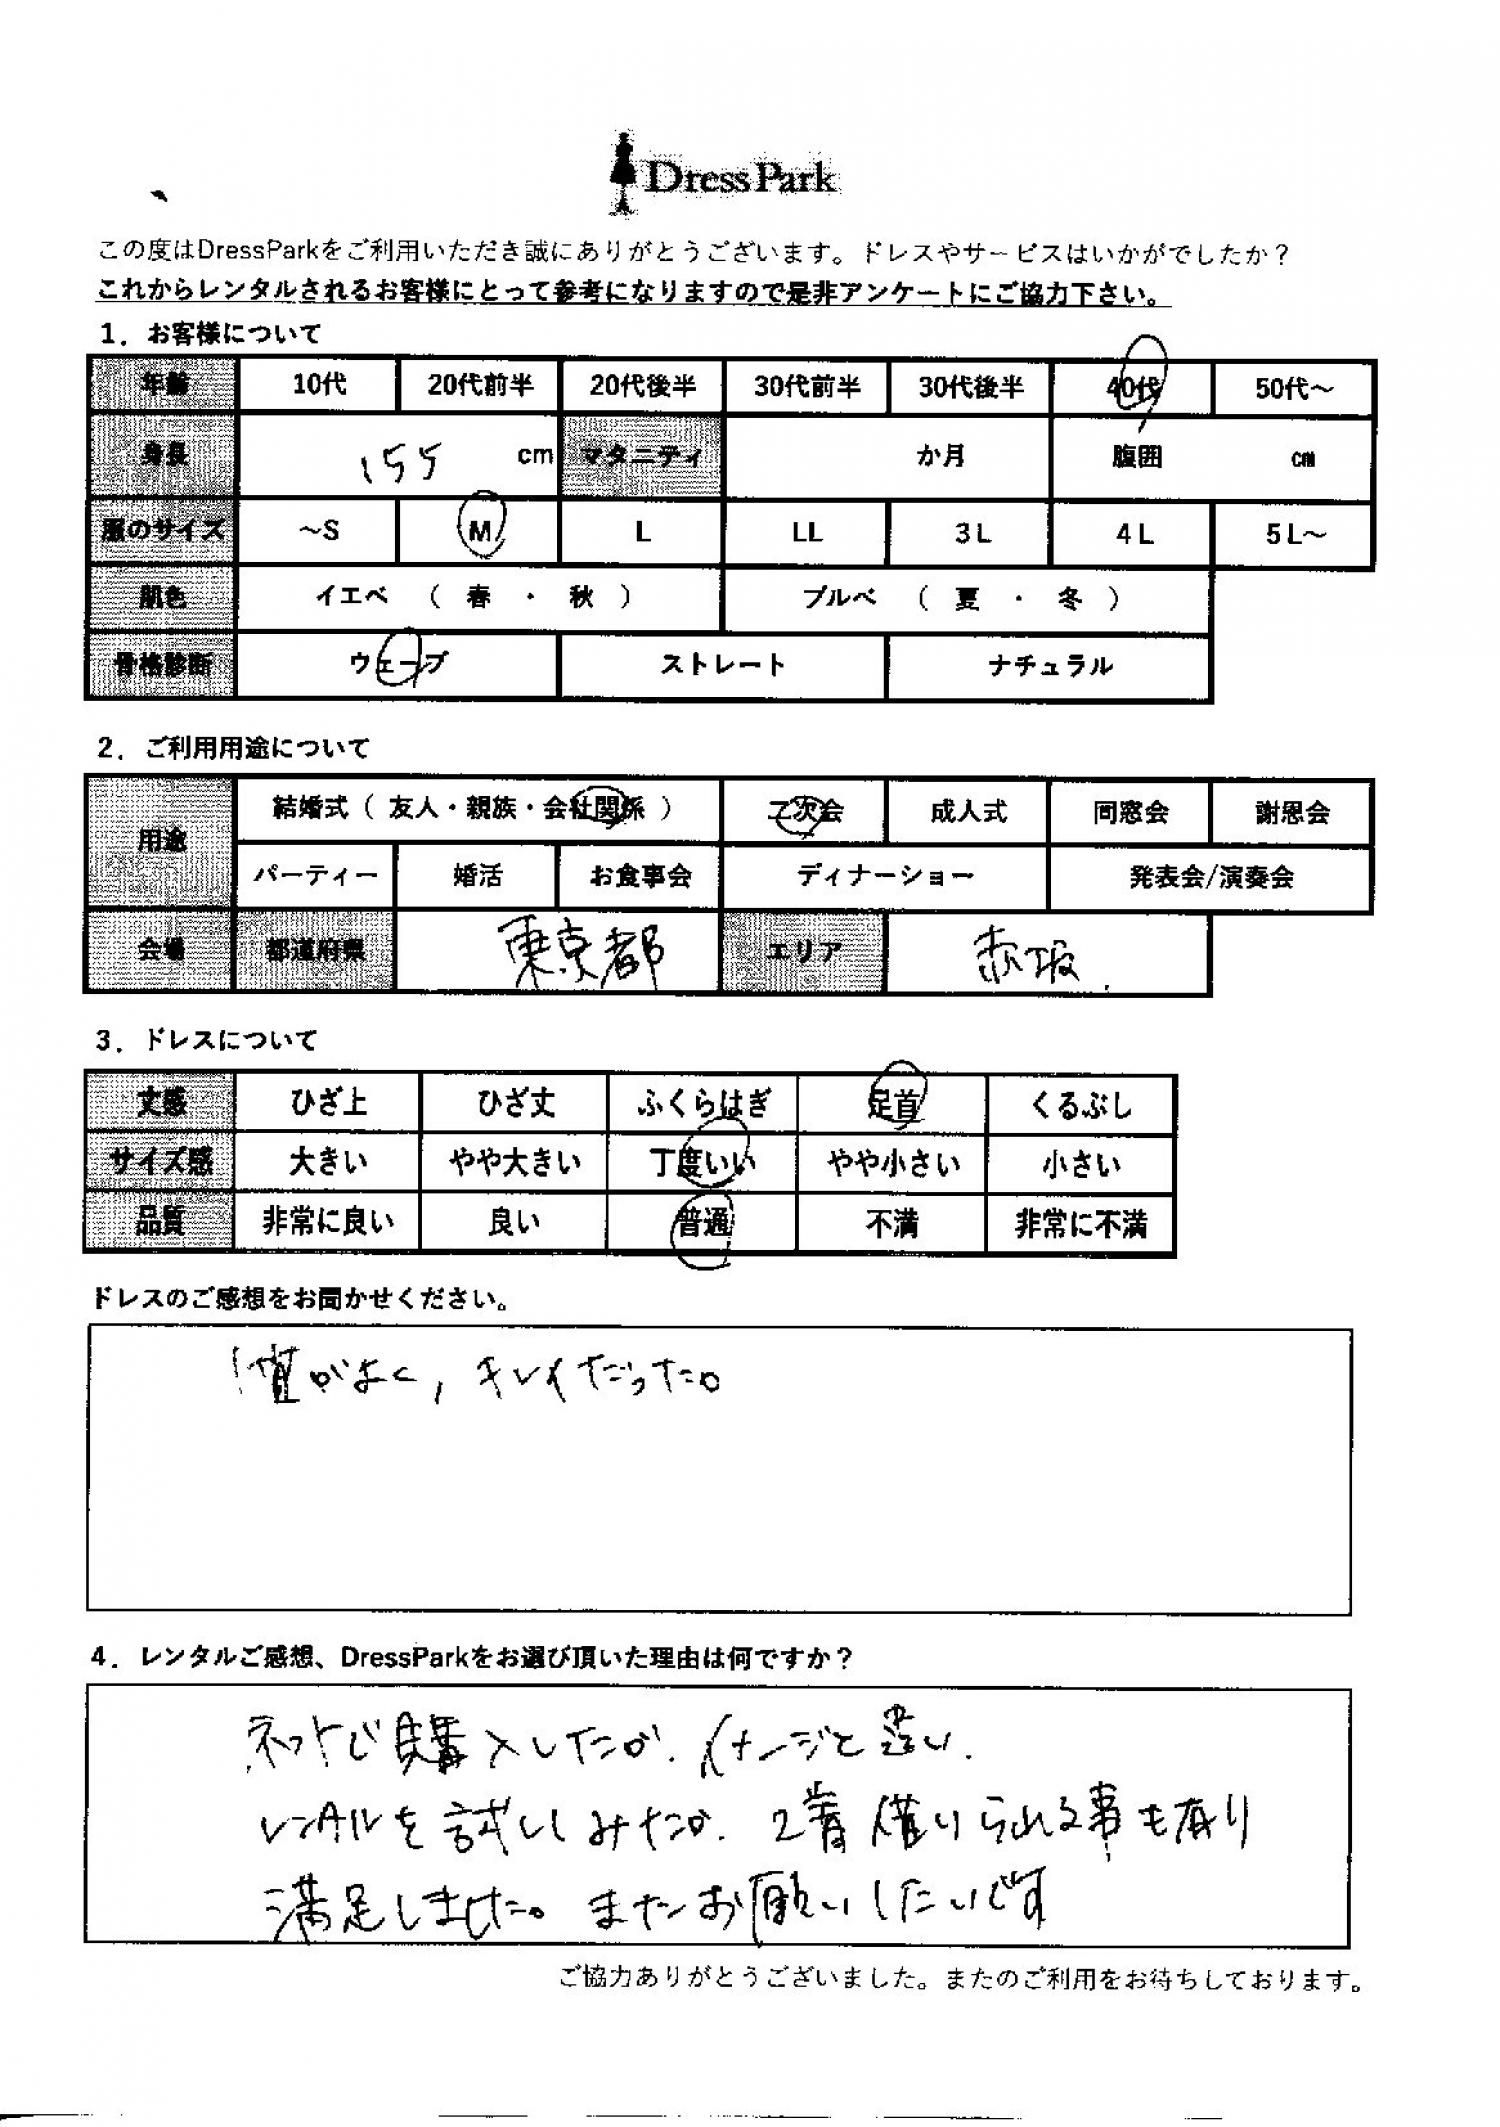 DressPark
この度はDressParkをご利用いただき誠にありがとうございます。ドレスやサービスはいかがでしたか？
これからレンタルされるお客様にとって参考になりますので是非アンケートにご協力下さい。
1．お客様について
年齢 10代 20代前半 20代後半 30代前半 30代後半 40代 50代～
身長 155 cm マタニティ か月 腹囲 cm
服のサイズ ～S M L LL 3L 4L 5L～
肌色 イエベ （ 春 ・ 秋 ） ブルベ （ 夏 ・ 冬 ）
骨格診断 ウェーブ ストレート ナチュラル
2．ご利用用途について
用途 結婚式（ 友人・親族・会社関係 ） 二次会 成人式 同窓会 謝恩会
パーティー 婚活 お食事会 ディナーショー 発表会/演奏会
会場 都道府県 東京都 エリア 赤坂
3．ドレスについて
丈感 ひざ上 ひざ丈 ふくらはぎ 足首 くるぶし
サイズ感 大きい やや大きい 丁度いい やや小さい 小さい
品質 非常に良い 良い 普通 不満 非常に不満
ドレスのご感想をお聞かせください。
がよく，キレイだった。
4．レンタルご感想、DressParkをお選び頂いた理由は何ですか？
ネットで購入したが、イメージと違い、
レンタルを試してみたが、2着借りられる事も有り
満足しました。またお願いしたいです
ご協力ありがとうございました。またのご利用をお待ちしております。